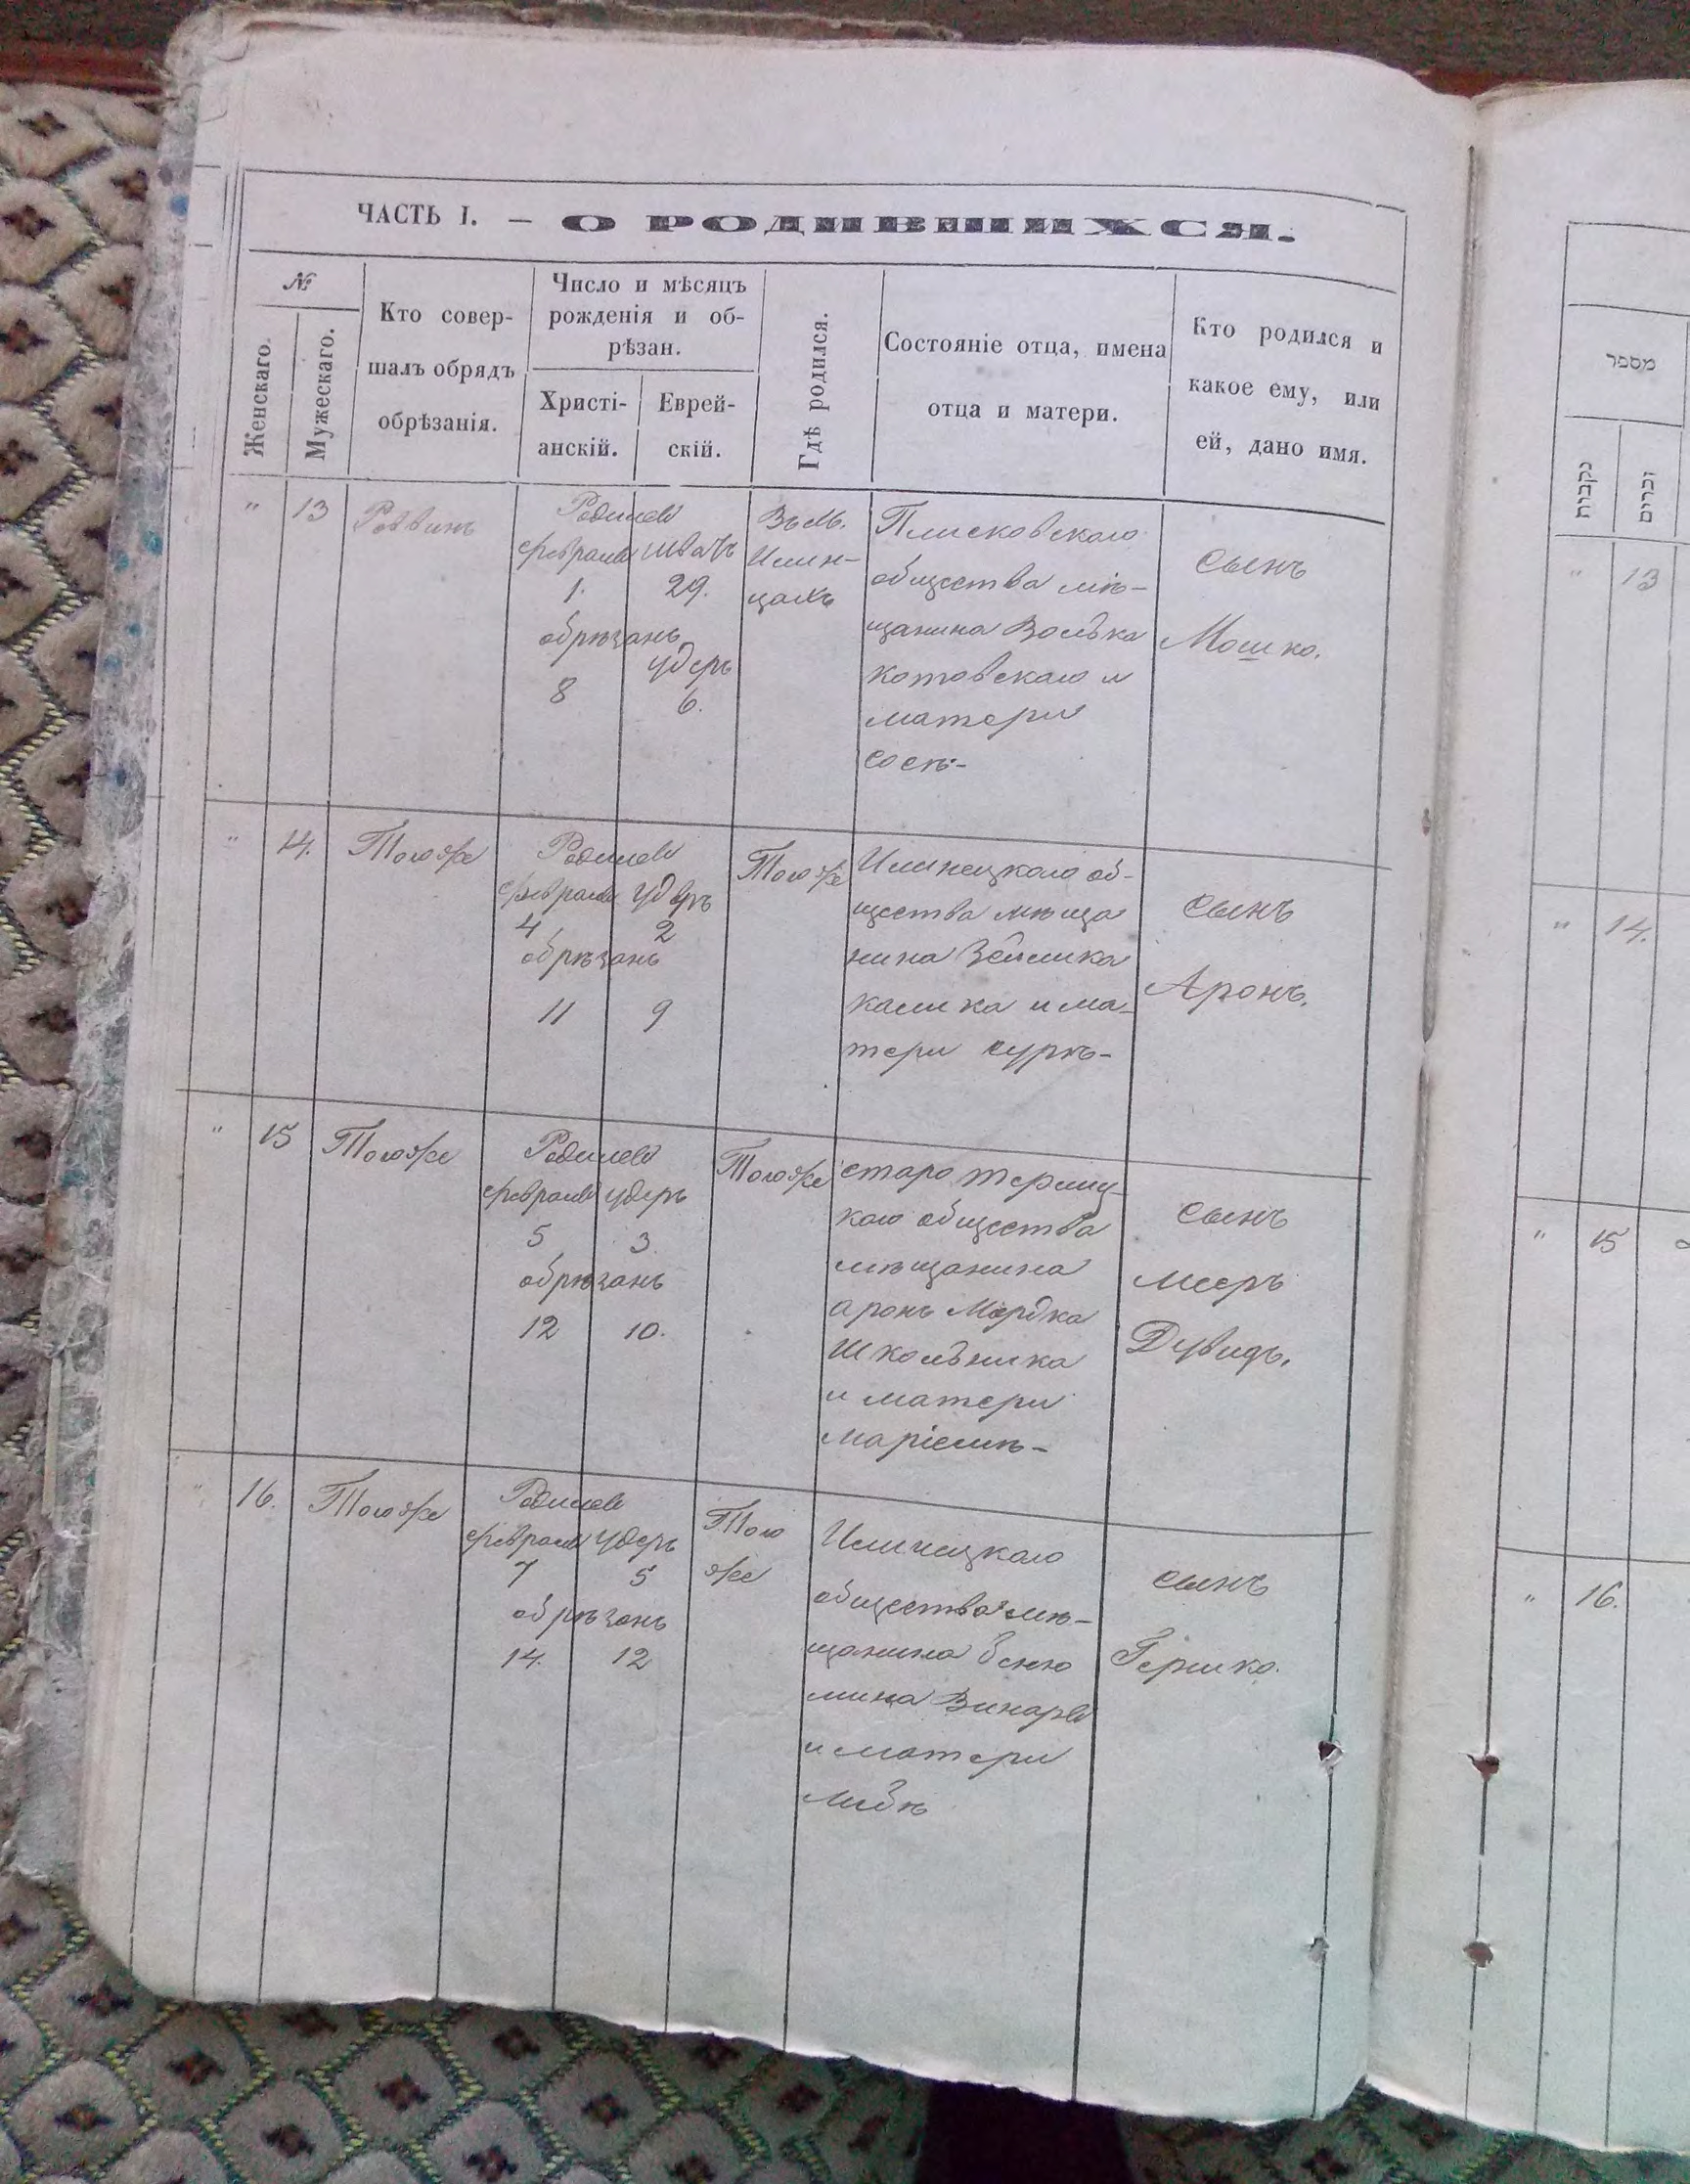 ЧАСТЬ I. — О РОДИВШИХСЯ.
№
Женскаго.
Мужескаго.
Кто совер-
шалъ обрядъ
обрѣзанія.
Число и мѣсяцъ
рожденія и об-
рѣзан.
Христі-
анскій.
Еврей-
скій.
Гдѣ родился.
Состояніе отца, имена
отца и матери.
Кто родился и
какое ему, или
ей, дано имя.
" 13
Раввинъ
Родился
февраля шватъ
1. 29.
обрѣзанъ
удеръ
8 6.
Въ М.
Илин-
цахъ
Плисковскаго
общества мѣ-
щанина Волька
Котовскаго и
матери
Сосѣ-
сынъ
Мошко.
" 14.
Тогоже
Родился
февраля удеръ
4 2
обрѣзанъ
11 9
Тогоже
Илинецкаго об-
щества мѣща
нина Зейлика
калика и ма-
тери сурѣ-
сынъ
Аронъ.
" 15
Тогоже
Родился
февраля удеръ
5 3.
обрѣзанъ
12 10.
Тогоже
старо
каго общества
мѣщанина
аронъ Мордка
Школьника
и матери
маріемѣ-
сынъ
мееръ
Дувидъ.
" 16.
Тогоже
Родился
февраля удеръ
7 5
обрѣзанъ
14. 12
Того
же
Илинецкаго
общества мѣ-
щанина беню
мина Винаря
и матери
сынъ
Гершко.
מספר
נקבות
זכרים
" 13
" 14.
" 15
" 16.